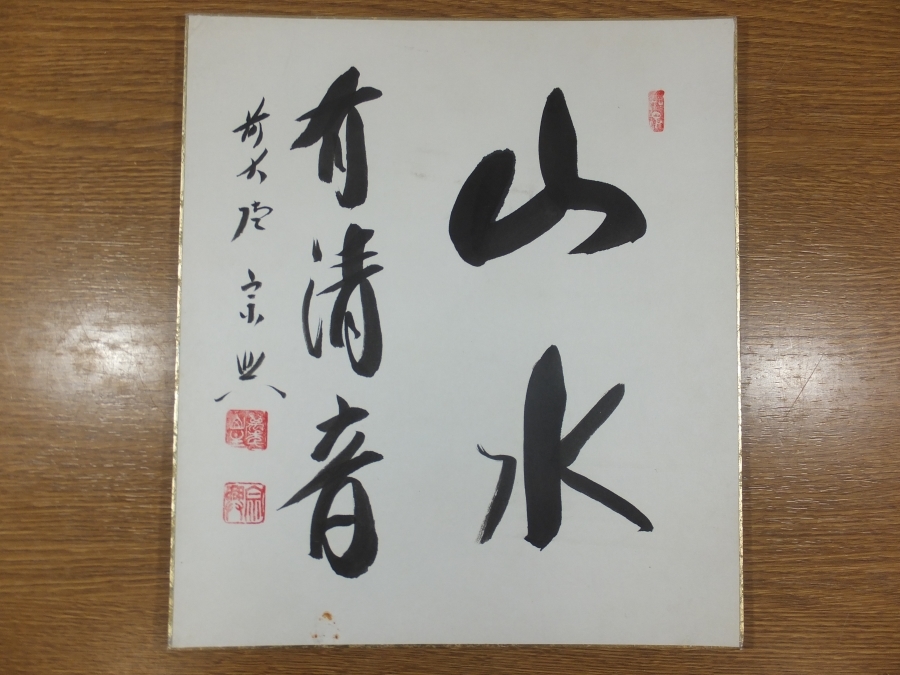 山水
有清音
前大徳 宗興